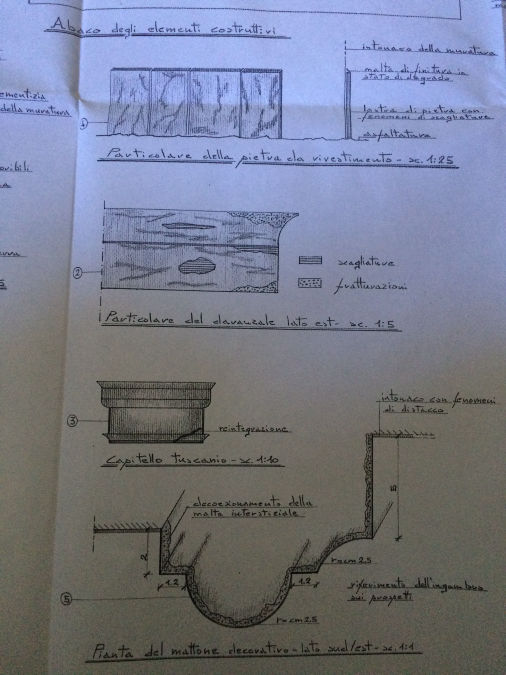 Abaco degli elementi costruttivi
intonaco della muratura
malta di finitura in
stato di degrado
lastra di pietra con
fenomeni di scagliature
asfaltatura
1
Particolare della pietra da rivestimento - sc. 1:25
2
scagliature
fratturazioni
Particolare del davanzale lato est - sc. 1:5
3
reintegrazione
Capitello tuscanio - sc. 1:10
intonaco con fenomeni
di distacco
decoesionamento della
malta interstiziale
5
2
1.2
1.2
r=cm 2.5
5
r=cm 2.5
riferimento dell'ingombro
sui prospetti
Pianta del mattone decorativo - lato sud/est - sc. 1:1
ementizia
della muratura
ovibili